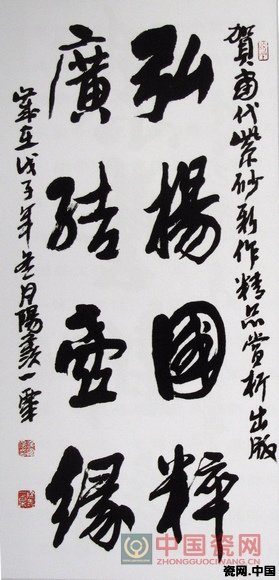 賀當代紫砂新作精品賞析出版
弘楊國粹
廣結壺緣
歲在戊子年冬月陽羨一
中国瓷网
ZHONGGUOCIWANG.CN
瓷网.中国